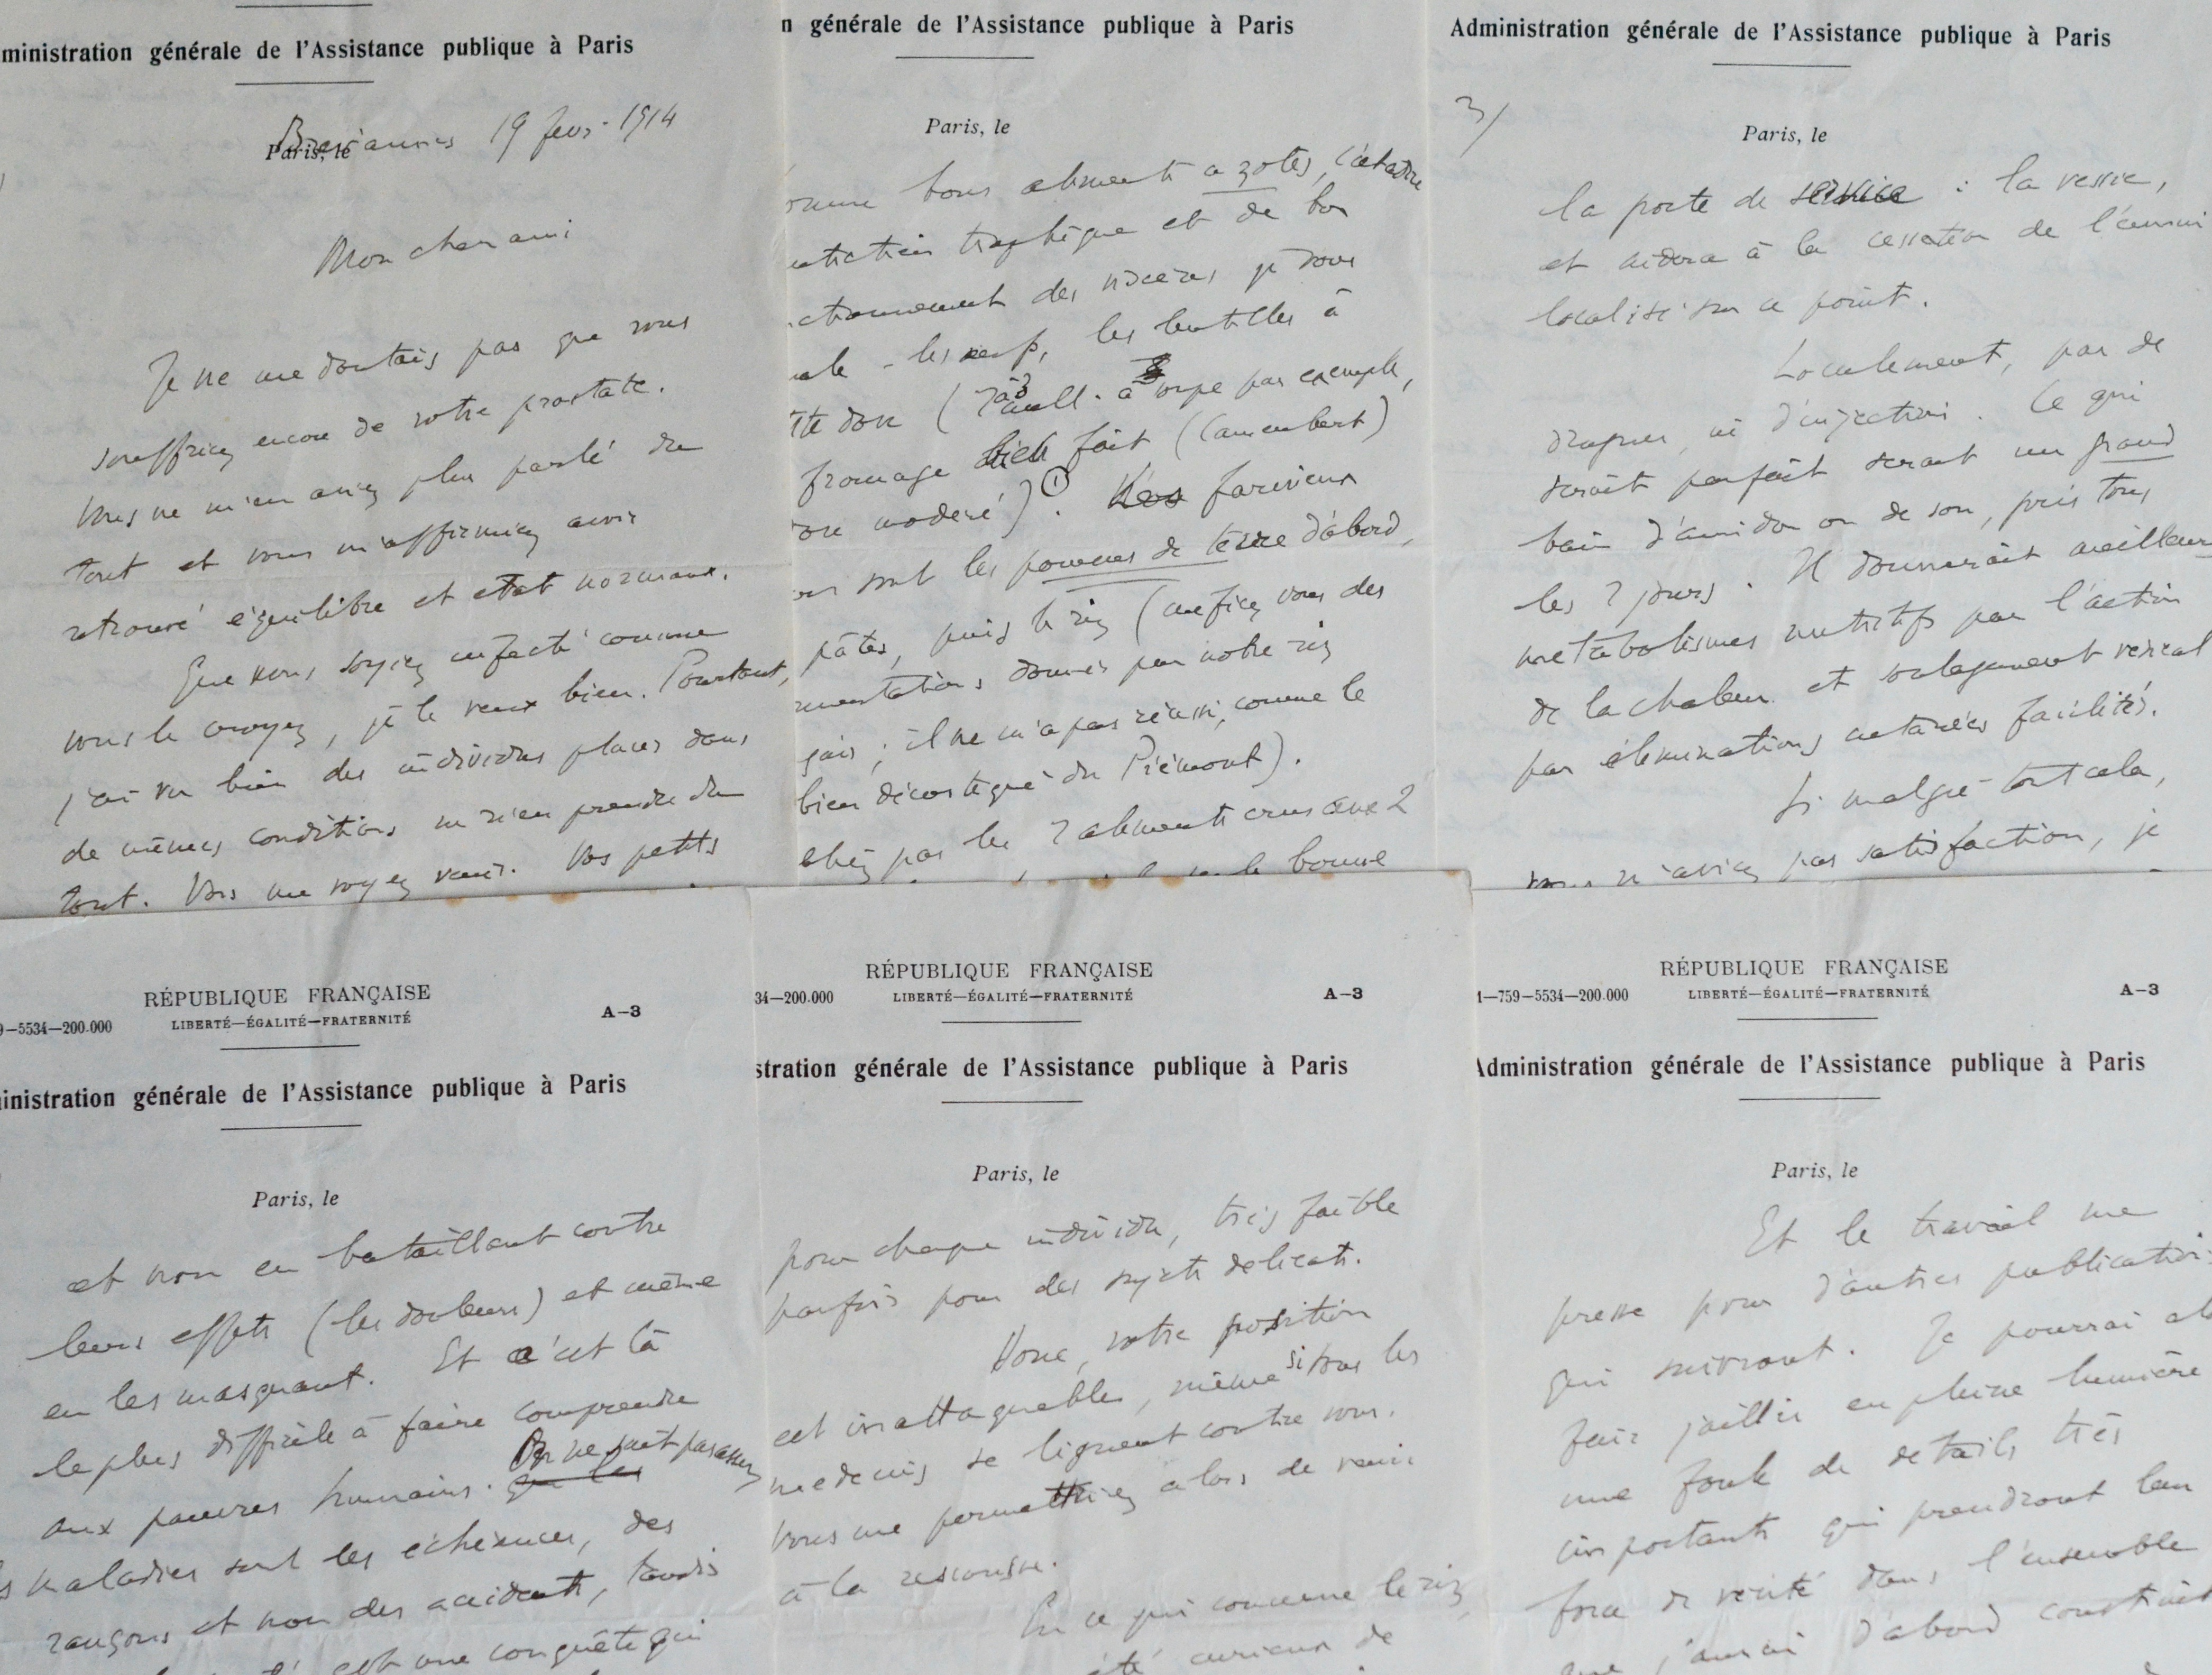 ministration générale de l'Assistance publique à Paris
Paris, le
19 fevr. 1914
Mon cher ami
Je ne me doutais pas que vous
souffriez encore de votre prostate.
Vous ne m'en aviez plus parlé du
tout et vous m'affirmiez avoir
retrouvé équilibre et etat normaux.
Que vous soyiez infecté comme
vous le croyez, je le veux bien. Pourtant,
j'ai vu bien des individus placés dans
de mêmes conditions ne rien prendre du
tout. Vous me voyez venir. Vos petits
n générale de l'Assistance publique à Paris
Paris, le
bons aliments azotés, c'est à dire
trophique et de bon
ctionnement des viscères je vous
les œufs, les lentilles à
donc ( à soupe par exemple,
fromage bien fait (Camembert)
modéré) ①. farineux
sont les pommes de terre d'abord,
pâtes, puis le riz (méfiez vous des
donnés par notre riz
; il ne m'a pas réussi, comme le
bien décortiqué du Piémont).
pas les 2 aliments crus aux 2
bonne
Administration générale de l'Assistance publique à Paris
3/
Paris, le
la porte de service : la vessie,
et aidera à la cessation de l'ennui
localisé sur ce point.
Localement, pas de
drogues, ni d'injections. Ce qui
serait parfait serait un grand
bain d'amidon ou de son, pris tous
les 2 jours. Il donnerait meilleurs
métabolismes nutritifs par l'action
de la chaleur et soulagement vésical
par éliminations cutanées facilités.
Si malgré tout cela,
vous n'aviez pas satisfaction, je
RÉPUBLIQUE FRANÇAISE
LIBERTÉ—ÉGALITÉ—FRATERNITÉ
A—3
9—5534—200.000
inistration générale de l'Assistance publique à Paris
Paris, le
et non en bataillant contre
leurs effets (les douleurs) et même
en les masquant. Et c'est là
le plus difficile à faire comprendre
aux pauvres humains. On ne sait pas assez
maladies sont les échéances, des
rançons et non des accidents, tandis
est une conquête qui
RÉPUBLIQUE FRANÇAISE
34—200.000
LIBERTÉ—ÉGALITÉ—FRATERNITÉ
A—3
stration générale de l'Assistance publique à Paris
Paris, le
pour chaque individu, très faible
parfois pour des sujets délicats.
Donc, votre position
est inattaquable, même si tous les
medecins se liguent contre vous.
Vous me permettriez alors de venir
à la rescousse.
En ce qui concerne le riz,
curieux de
RÉPUBLIQUE FRANÇAISE
1—759—5534—200.000
LIBERTÉ—ÉGALITÉ—FRATERNITÉ
A—3
Administration générale de l'Assistance publique à Paris
Paris, le
Et le travail me
presse pour d'autres publications
qui suivront. Je pourrai
faire jaillir en pleine lumière
une foule de détails très
importants qui prendront leur
force de vérité dans l'ensemble
que j'aurai d'abord construit